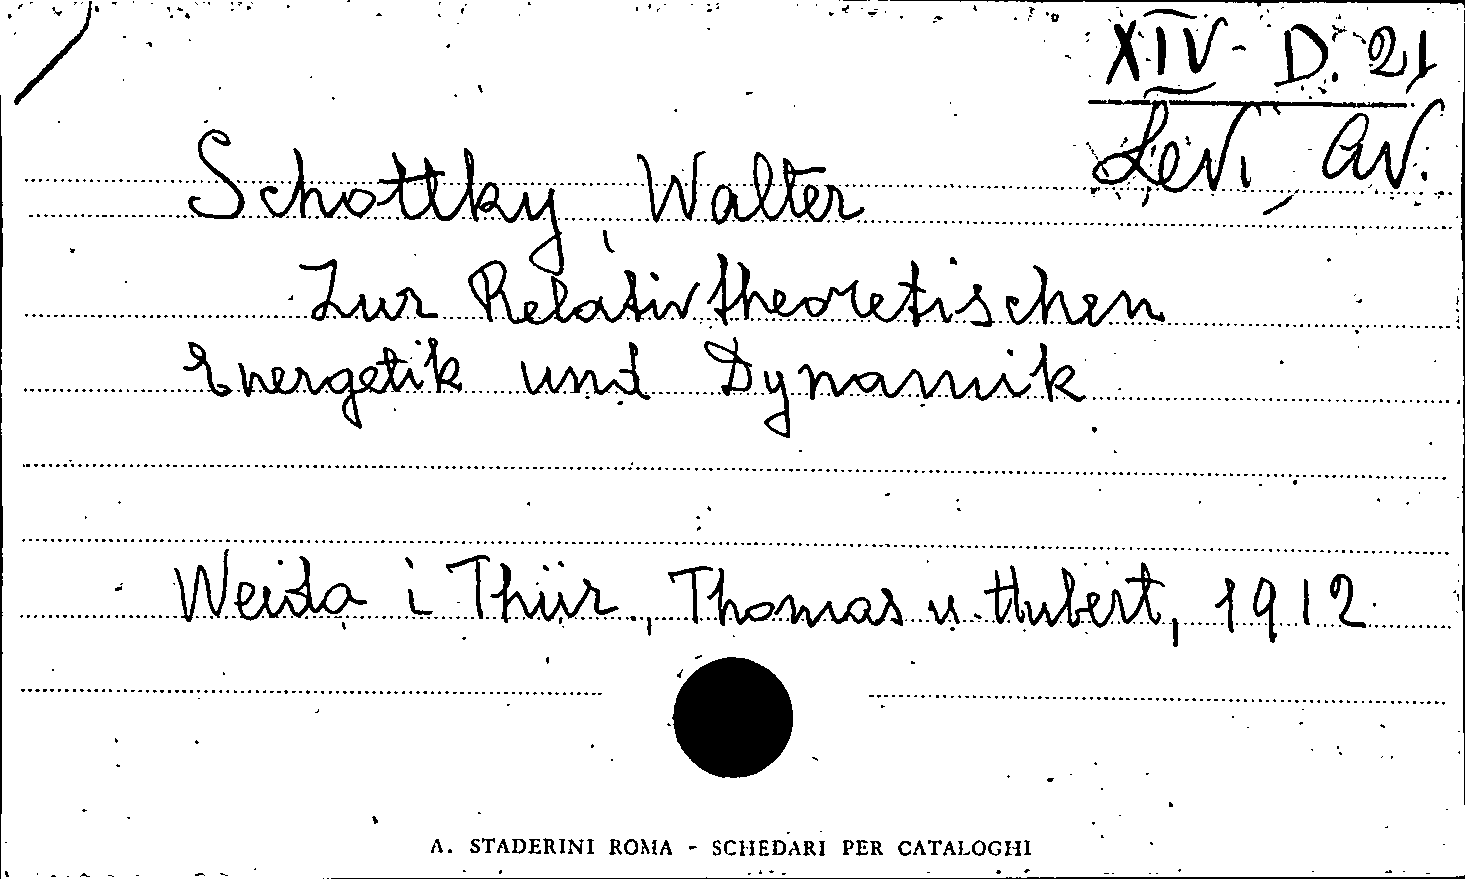 XIV - D. 21
Levi, Av.
Schottky, Walter
Zur Relativtheoretischen
Energetik und Dynamik
Weida i Thür., Thomas u. Hubert, 1912
A. STADERINI ROMA - SCHEDARI PER CATALOGHI